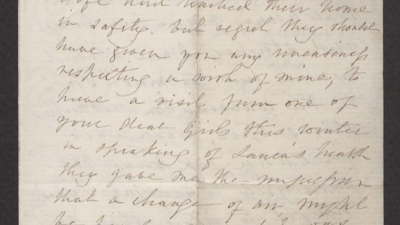 in safety. but regret they should
have given you any uneasiness
respecting a wish of mine, to
have a visit from one of
your dear Girls this winter
in speaking of Laura's health
they gave me the impression
that a change of air might